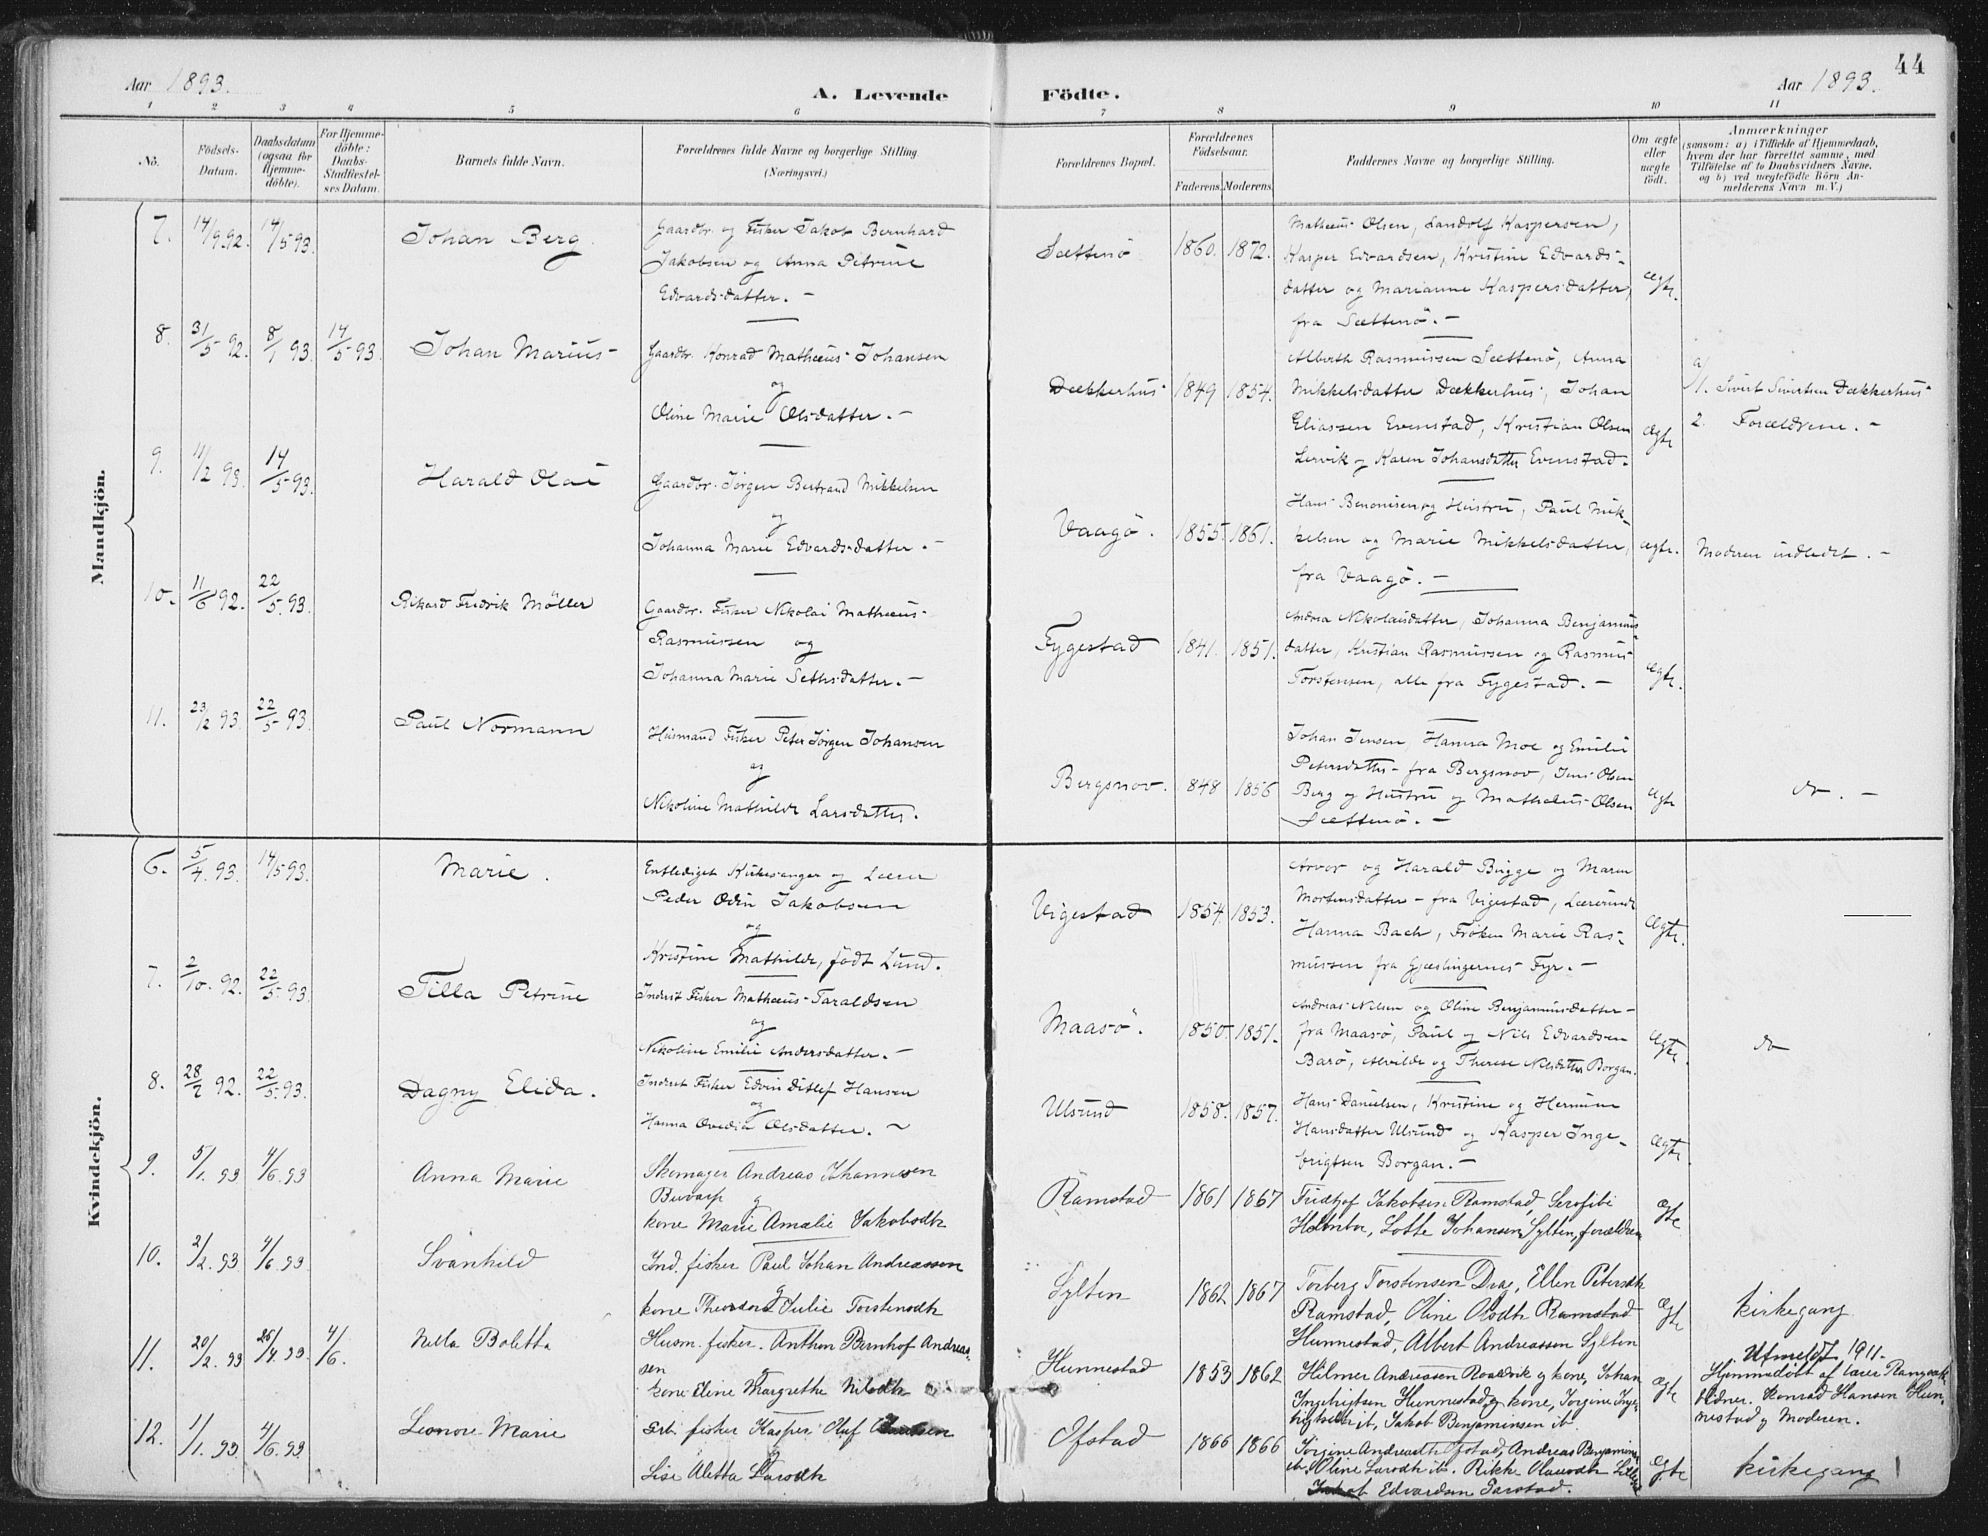 44
Aar 1893.
A. Levende Födte.
Aar 1893.
1 2 3 4 5 6 7 8 9 10 11
No.
Födsels-
Datum.
Daabsdatum
(ogsaa for
Hjemme-
döbte).
For Hjemme-
döbte:
Daabs-
Stadfæstel-
ses Datum.
Barnets fulde Navn.
Forældrenes fulde Navne og borgerlige Stilling
(Næringsvei.)
Forældrenes Bopæl.
Forældrenes
Födselsaar.
Faderens. Moderens.
Faddernes Navne og borgerlige Stilling.
Om ægte
eller
uægte
født.
Anmærkninger
(saasom: a) i Tilfælde af Hjemmedaab,
hvem der har forrettet samme, med
Tilföielse af to Daabsvidners Navne.
og b) ved uægtefödte Börn An-
melderens Navn m. V.)
Mandkjön.
7. 14/9 92. 14/5 93. Johan Berg.
Gaardbr. og Fisker Jakob Bernhard
Jakobsen og Anna Petrine
Edvardsdatter. –
Sættenö 1860. 1872.
Mathæus Olsen, Landolf Kaspersen,
Kasper Edvardsen, Kristine Edvards-
datter og Marianne Kaspersdatter,
fra Sættenö. –
ægte.
8. 31/5 92. 8/1 93. 14/5 93. Johan Marius
Gaardbr. Konrad Mathæus Johansen
og
Oline Marie Olsdatter. –
Dækkerhus 1849 1854.
Alberth Rasmussen Sættenö, Anna
Mikkelsdatter Dækkerhus, Johan
Eliassen Evenstad, Kristian Olsen
Lervik og Karen Johansdatter Evenstad.
Ægte
a)
1. Sivert Sivertsen Dækkerhus
2. Forældrene. –
9. 11/2 93. 14/5 93. Harald Olai
Gaardbr. Jörgen Bertrand Mikkelsen
og
Johanna Marie Edvardsdatter. –
Vaagö. 1855. 1861.
Hans Benonisen og Hustru, Paul Mik-
kelsen og Marie Mikkelsdatter,
fra Vaagö. –
ægte.
Moderen indledet. –
10. 11/6 92. 22/5 93. Rikard Fredrik Möller
Gaardbr. Fisker Nikolai Mathæus
Rasmussen og
Johanna Marie Sethsdatter. –
Fygestad 1841. 1851.
Andrea Nikolaisdatter, Johanna Benjamins-
datter, Kristian Rasmussen og Rasmus
Torstensen, alle fra Fygestad. –
ægte.
11. 23/2 93. 22/5 93. Paul Normann
Husmand Fisker Peter Jörgen Johansen
og
Nikoline Mathilde Larsdatter.
Bergsnov. 848 1856
Johan Jensen, Hanna Moe og Emilie
Petersdatter fra Bergsnov, Jens Olsen
Berg og Hustru og Mathæus Olsen
Sættenö. –
ægte
do. –
Kvindekjön.
6. 5/4. 93. 14/5 93. Marie.
Entlediget Kirkesanger og Lærer
Peder Odin Jakobsen
og
Kristine Mathilde, født Lund.
Vigestad 1854. 1853.
Arvor og Harald Bugge og Maren
Mortensdatter – fra Vigestad, Lærerinde
Hanna Bach, Fröken Marie Ras-
mussen fra Gjæslingernes Fyr. –
Ægte.
7. 2/10. 92. 22/5 93. Tilla Petrine
Inderst Fisker Mathæus Taraldsen
og
Nikoline Emilie Andersdatter. –
Maasö. 1850. 1851.
Andreas Nilsen og Oline Benjaminsdatter –
fra Maasö, Paul og Nils Edvardsen
Barö, Alvilde og Therese Nilsdatter Borgan.
Ægte.
do
8. 28/7 92. 22/5. 93. Dagny Elida.
Inderst Fisker Edvin Ditlef Hansen
og
Hanna Ovedia Olsdatter. –
Ulsund 1858. 1857.
Hans Danielsen, Kristine og Hermine
Hansdatter Ulsund og Kasper Inge-
brigtsen Borgan. –
Ægte.
9. 5/1. 93 4/6. 93 Anna Marie
Skomager Andreas Johannessen
Buvarp og
kone Marie Amalie Jakobsdtr
Ramstad 1861 1867
Fridtjof Jakobsen Ramstad, Serofibe
Lotte Johansen Sylten, forældrene
Ægte
10. 2/2. 93 4/6. 93 Svanhild
Ind. fisker Paul Johan Andreassen
og
kone Theodora Julie Torstensdtr
Sylten 1862 1867
Torberg Torstensen Drag, Ellen Petersdtr
Ramstad, Oline Olsdtr Ramstad
Hunnestad, Albert Andreassen Sylten
Ægte
kirkegang
11. 20/2. 93 25/4. 93. 4/6. Nella Boletta
Husm. fisker. Anthon Bernhof Andreas-
sen og
kone Eline Margrethe Nilsdtr
Hunnestad 1853 1862
Hilmer Andreassen Roaldvik og kone, Johan
Ingebrigtsen Hunnestad og kone, Jorgine Inge-
brigtsdtr ib, Jakob Benjaminsen ib.
Ægte
Utmeldt 1911.
Hjemmedöbt af lærer
vidner. Konrad Hansen Hun-
nestad og Moderen.
12. 1/1. 93 4/6. 93 Leonore Marie
Srb. fisker Kasper Oluf
og
Lise Aletta Larsdtr
Ofstad 1866 1866
Jörgine Andreasdtr Ofstad, Andreas Benjaminsen
ib, Oline Larsdtr ib. Rikke Olausdtr
Jakob Edvardsen Tarstad.
Ægte
kirkegang